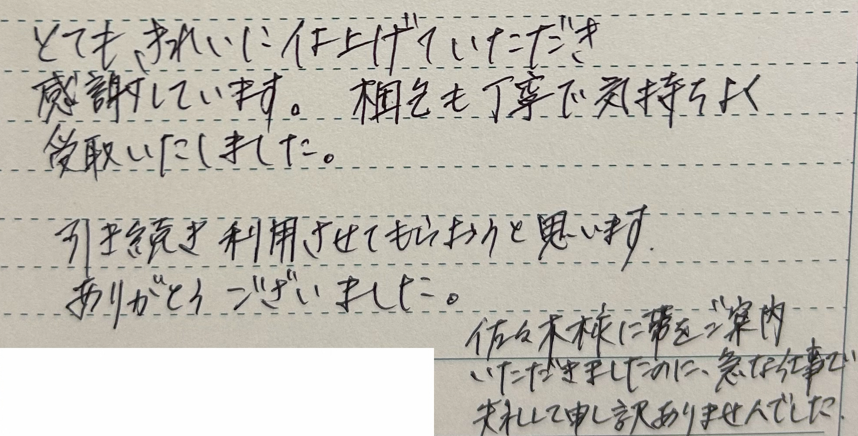 とても、きれいに仕上げていただき
感謝しています。 梱包も丁寧で気持ちよく
受取いたしました。
引き続き利用させてもらおうと思います.
ありがとうございました。
佐々木様に帯をご案内
いただきましたのに、急な仕事で
失礼して申し訳ありませんでした.